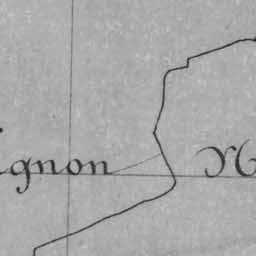 ignon N